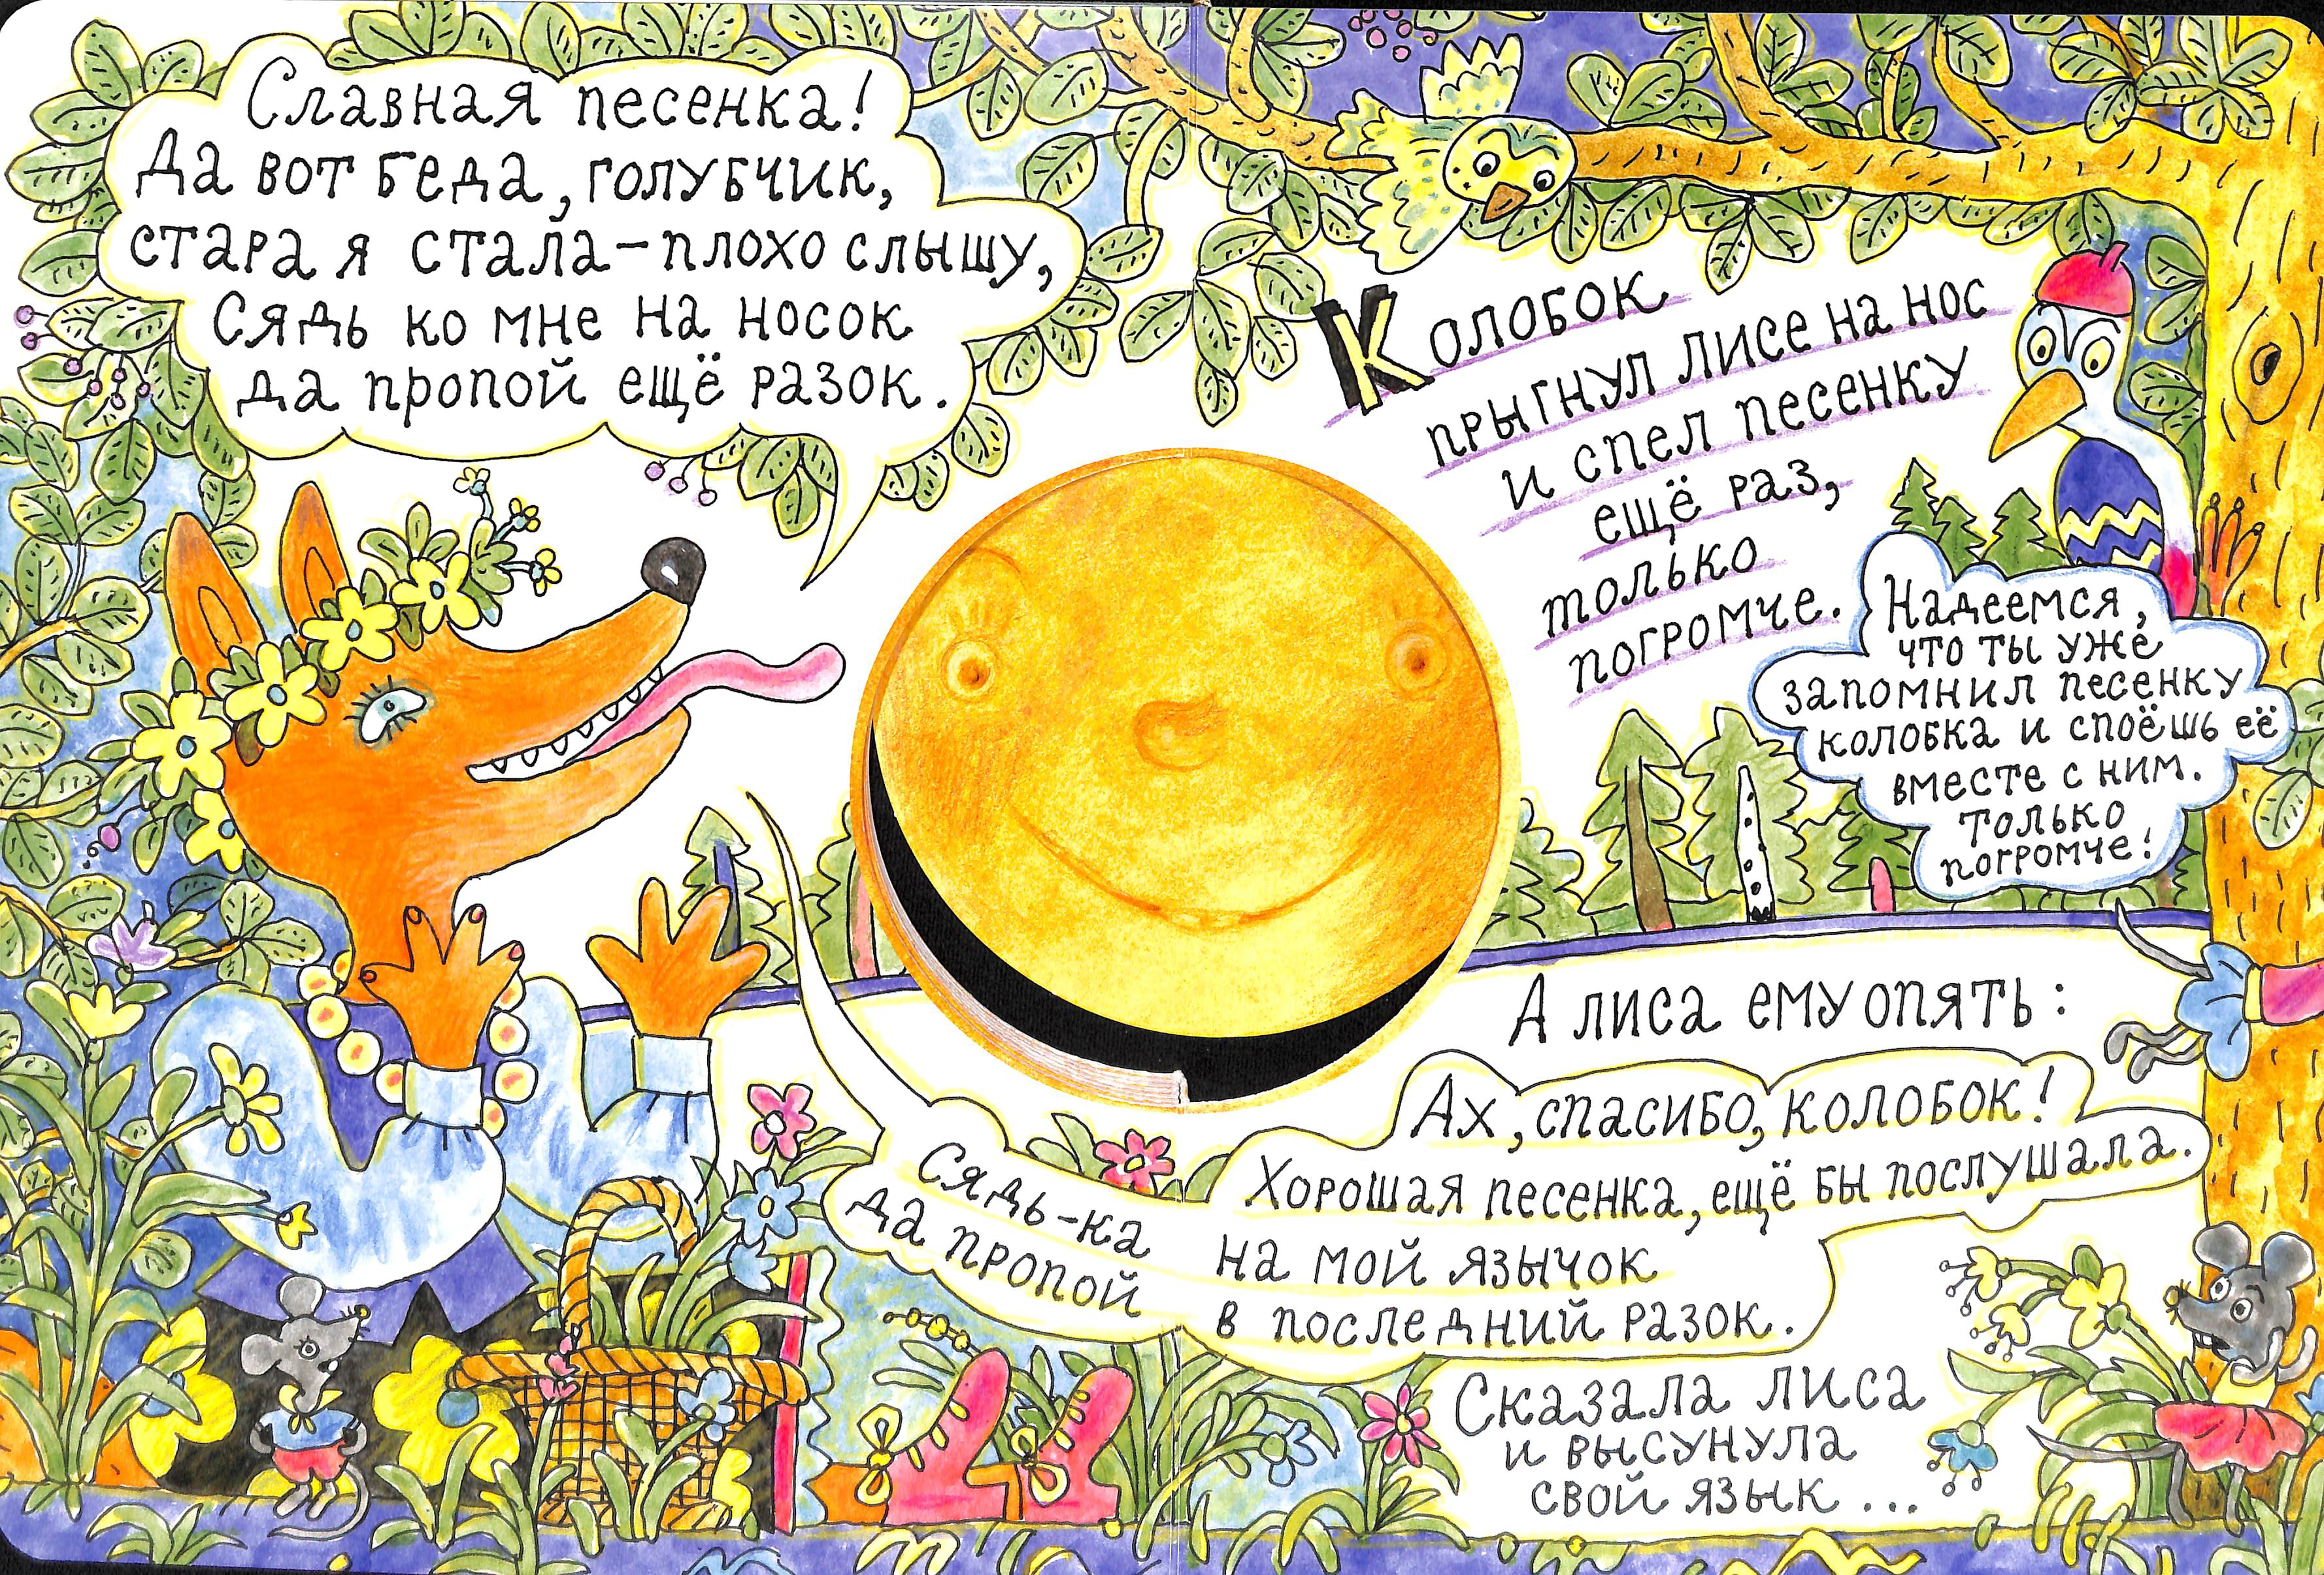 Славная песенка!
Да вот беда, голубчик,
стара я стала – плохо слышу,
Сядь ко мне на носок
да пропой ещё разок.
Колобок
прыгнул лисе на нос
и спел песенку
ещё раз,
только
погромче.
Надеемся,
что ты уже
запомнил песенку
колобка и споёшь её
вместе с ним.
Только
погромче!
А лиса ему опять:
Ах, спасибо, колобок!
Хорошая песенка, ещё бы послушала.
Сядь-ка на мой язычок
да пропой в последний разок.
Сказала лиса
и высунула
свой язык...